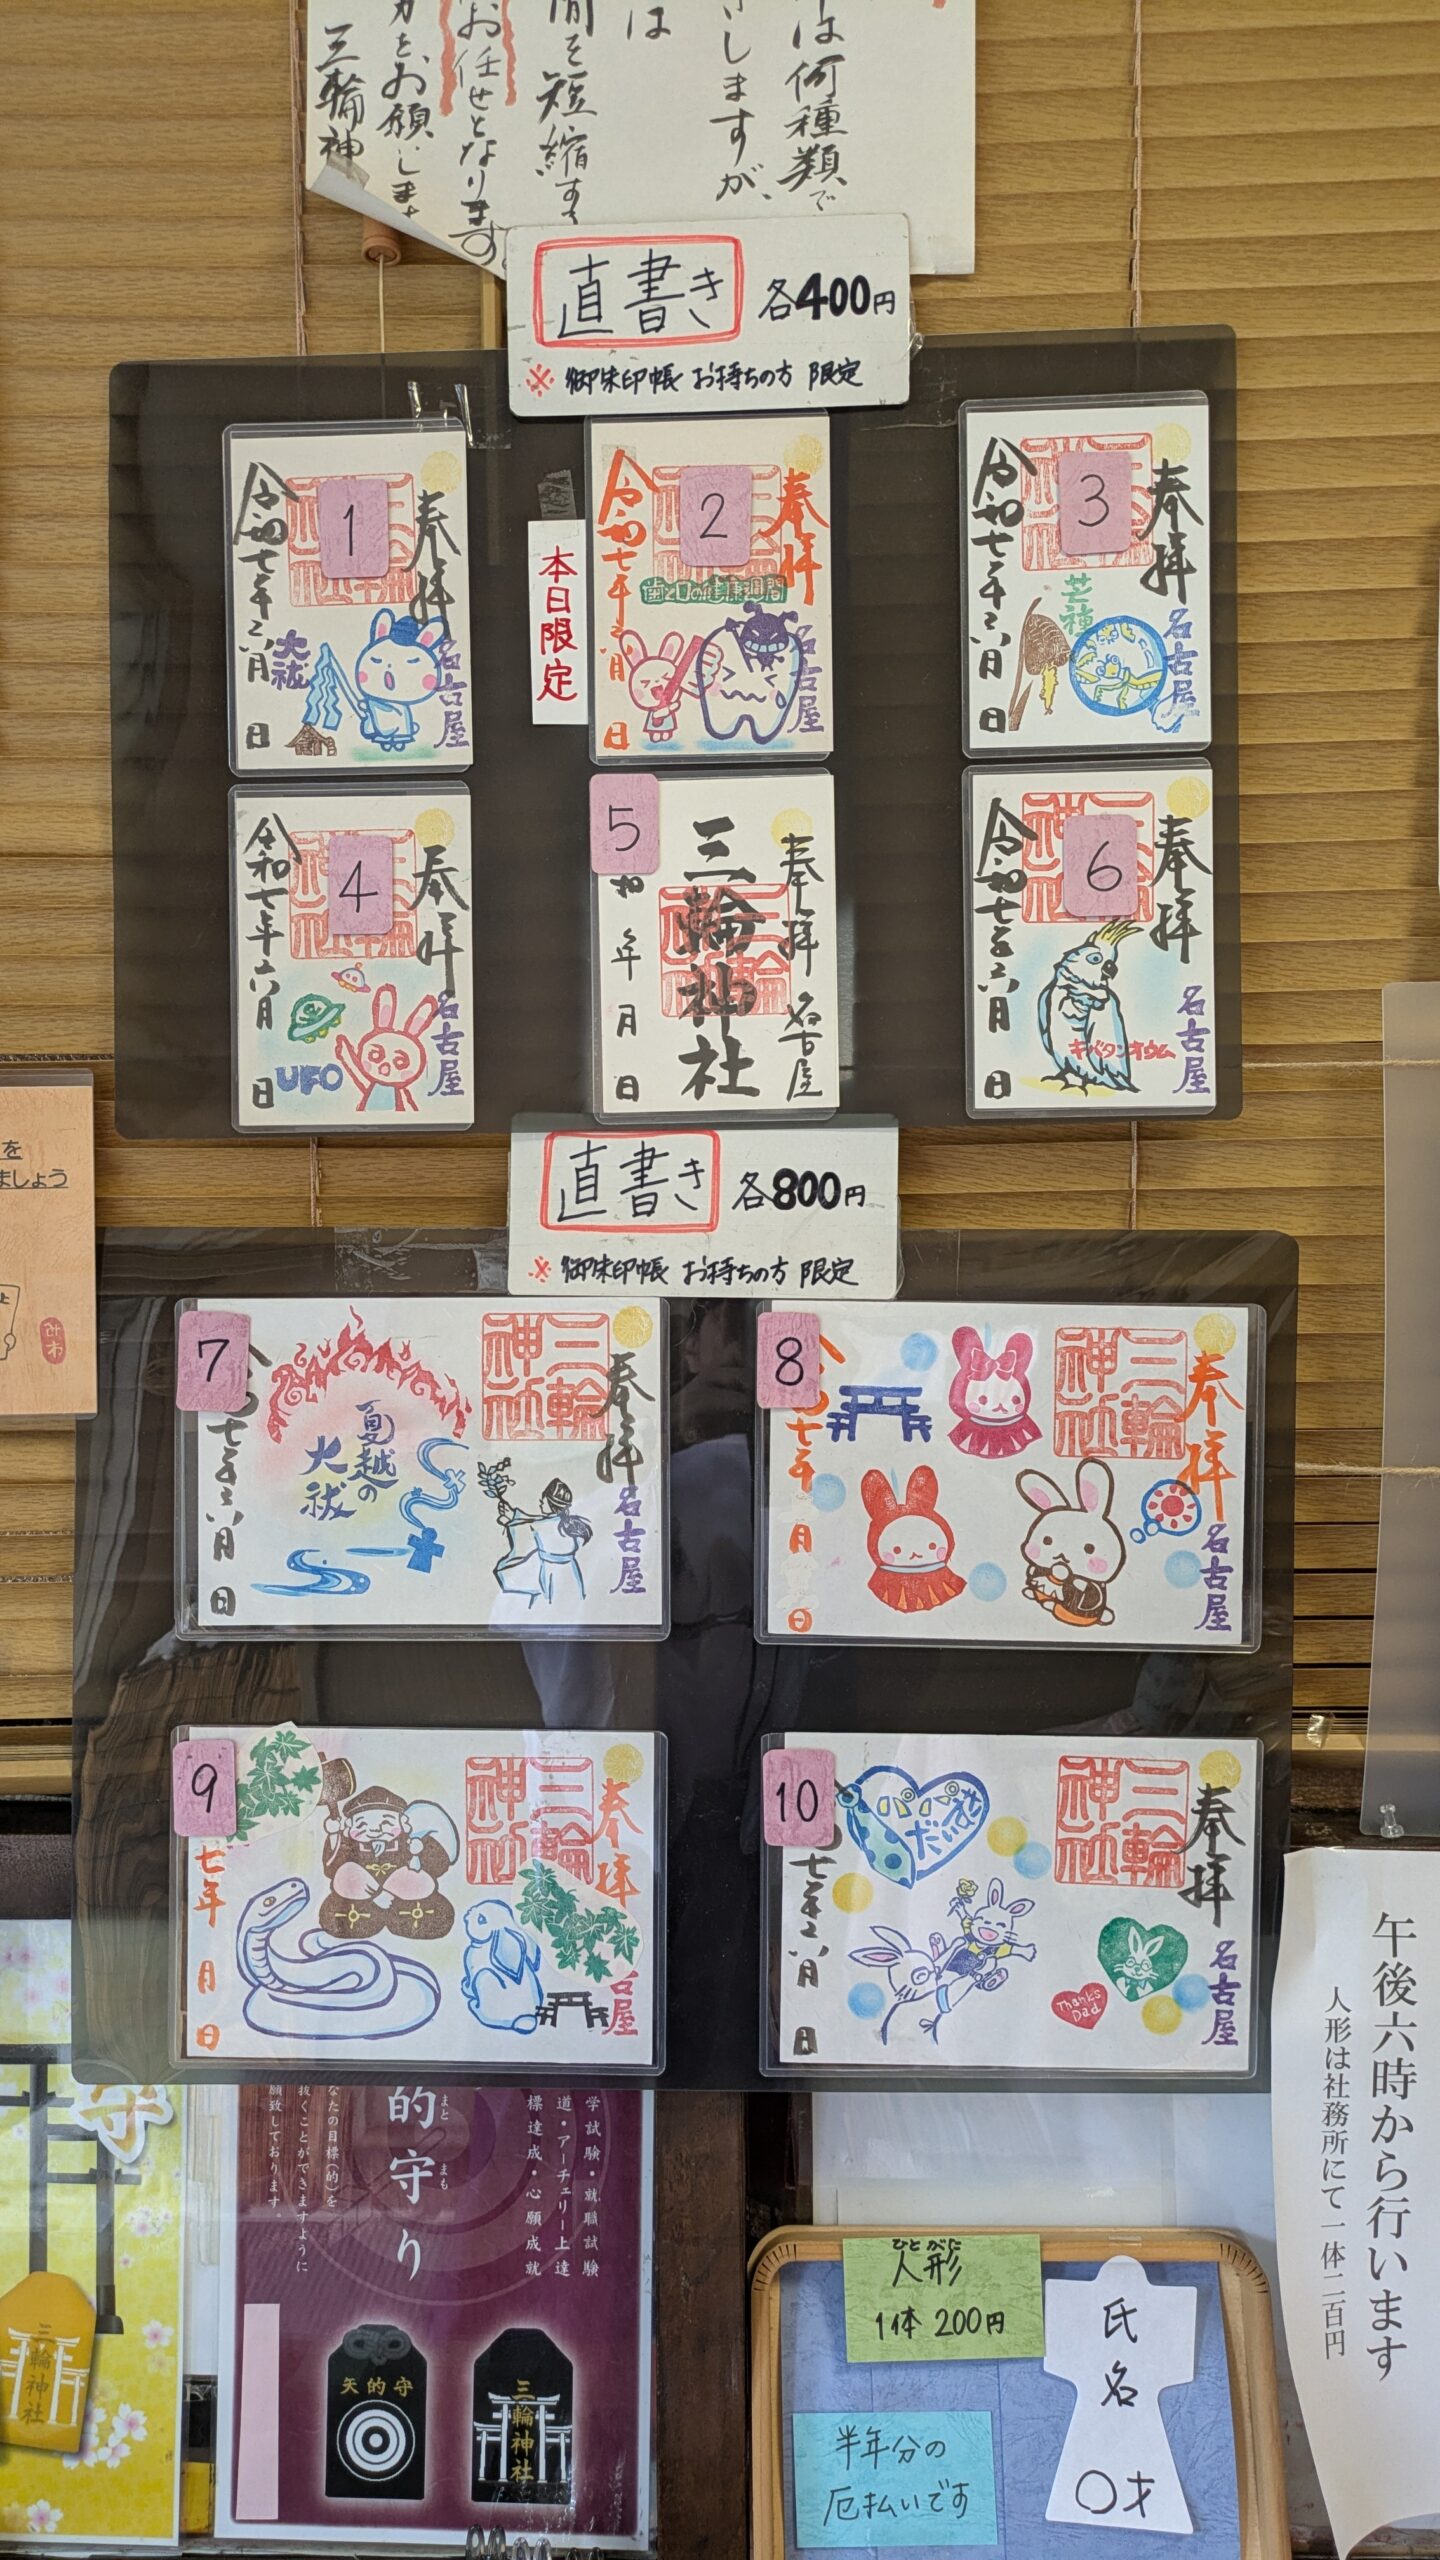 は何種類で
しますが、
は
間を短縮す
お任せとなります
力をお願いしま
三輪神
直書き 各400円
※御朱印帳 お持ちの方 限定
1
奉拝
名古屋
大祓
令和七年六月 日
本日限定
2
奉拝
名古屋
歯と口の健康週間
令和七年六月 日
3
奉拝
名古屋
芒種
令和七年六月 日
4
奉拝
名古屋
UFO
令和七年六月 日
5
奉拝 名古屋
三輪神社
和 年 月 日
6
奉拝
名古屋
キバタンオウム
令和七年六月 日
直書き 各800円
※御朱印帳 お持ちの方 限定
7
奉拝
名古屋
三輪神社
夏越の
大祓
七年六月 日
8
奉拝
名古屋
三輪神社
七年 月 日
9
奉拝
名古屋
三輪神社
七年 月 日
10
奉拝
名古屋
三輪神社
Thanks
Dad
七年六月 日
を
ましょう
午後六時から行います
人形は社務所にて一体二百円
学試験・就職試験
道・アーチェリー上達
標達成・心願成就
的守り
まと まも
なたの目標(的)を
抜くことができますように
願致しております。
矢的守
三輪神社
守
三輪神社
ひとがた
人形
1体 200円
半年分の
厄払いです
氏名
〇才